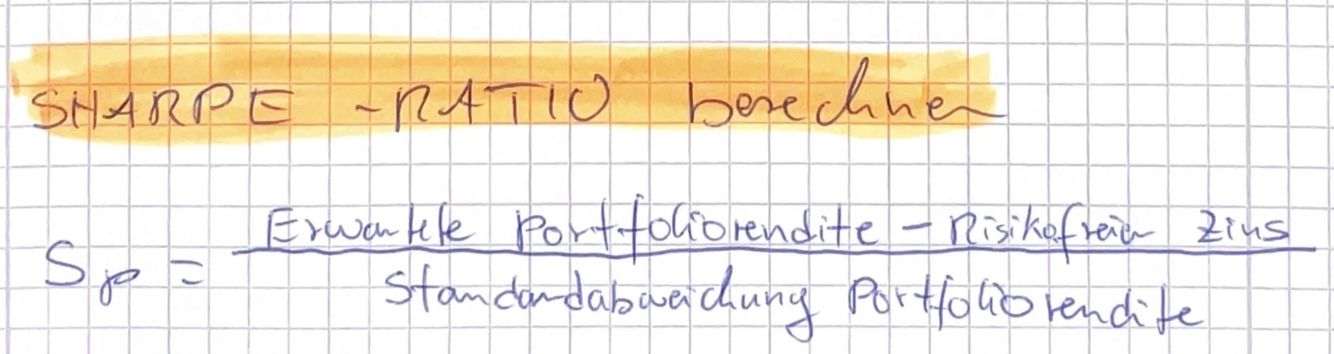 SHARPE -RATIO berechnen
Sp = Erwartete Portfoliorendite - Risikofreier Zins
Standardabweichung Portfoliorendite